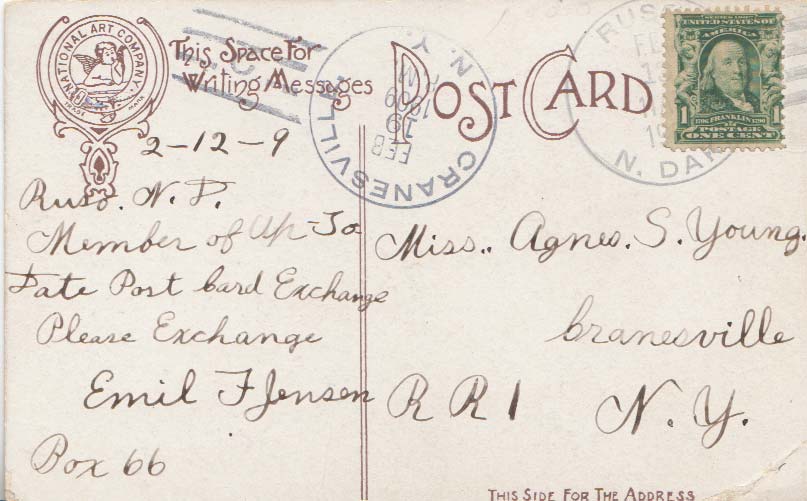 NATIONAL ART COMPANY
TRADE MARK
This Space For
Writing Messages
POST CARD
CRANESVILLE N.Y.
FEB
19
1909
M
RUS
N. DAK
SERIES 1902
UNITED STATES OF
AMERICA
1 1706 FRANKLIN 1790 1
POSTAGE
ONE CENT
2-12-9
Ruso. N. D.
Member of Up-To
Date Post Card Exchange
Please Exchange
Emil F Jensen
Box 66
Miss.. Agnes. S. Young.
Cranesville
R R 1 N. Y.
THIS SIDE FOR THE ADDRESS